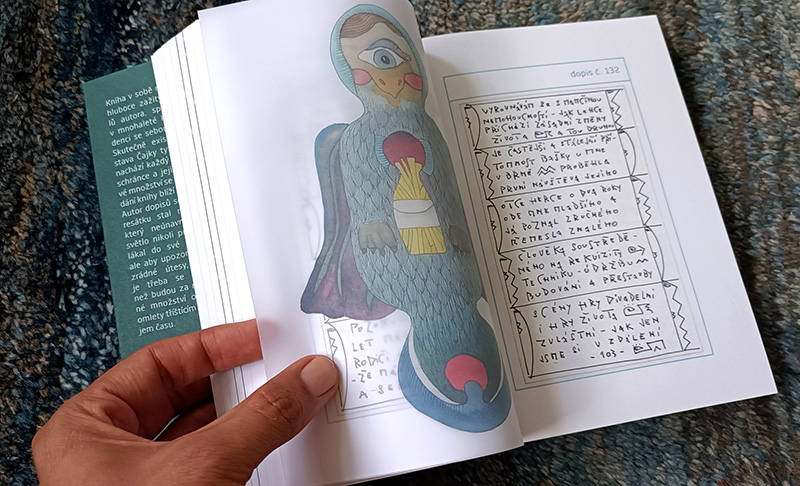 Kniha v sobě
hluboce zažit
lů autora, sp
v mnohaleté
denci se sebou
Skutečné exis
stava Čajky ty
nachází každý
schránce a její
vé množství se
dání knihy blíží
Autor dopisů se
resátku stal
který neúnav
světlo nikoli p
lákal do své
ale aby upozor
zrádné útesy,
je třeba se
než budou za
né množství o
omlety tříšticím
jem času.
POZO
LET
RODIČ
- ŽE MÁ
A - SE
dopis č. 132
VYROVNÁVÁM SE S MATČINOU
NEMOHOUCNOSTÍ - JAK LEHCE
PŘICHÁZÍ ZÁSADNÍ ZMĚNY
ŽIVOTA A TOU DRUHOU
JE ČASTĚJŠÍ A STÁLEJŠÍ PŘÍ-
TOMNOST BAŠKY U MNE
V BRNĚ PROBĚHLA
PRVNÍ NÁVŠTĚVA JEJÍHO
OTCE HERCE O DVA ROKY
ODE MNE MLADŠÍHO A
JÁ POZNAL ZRUČNÉHO
ŘEMESLA ZNALÉHO
ČLOVĚKA SOUSTŘEDĚ-
NÉHO NA REKVIZITY
TECHNIKU - ÚDRŽBU
BUDOVÁNÍ A PŘESTAVBY
SCÉNY HRY DIVADELNÍ
I HRY ŽIVOTA
ZVLÁŠTNÍ - JAK JEN
JSME SI VZDÁLENÍ
- 103 -